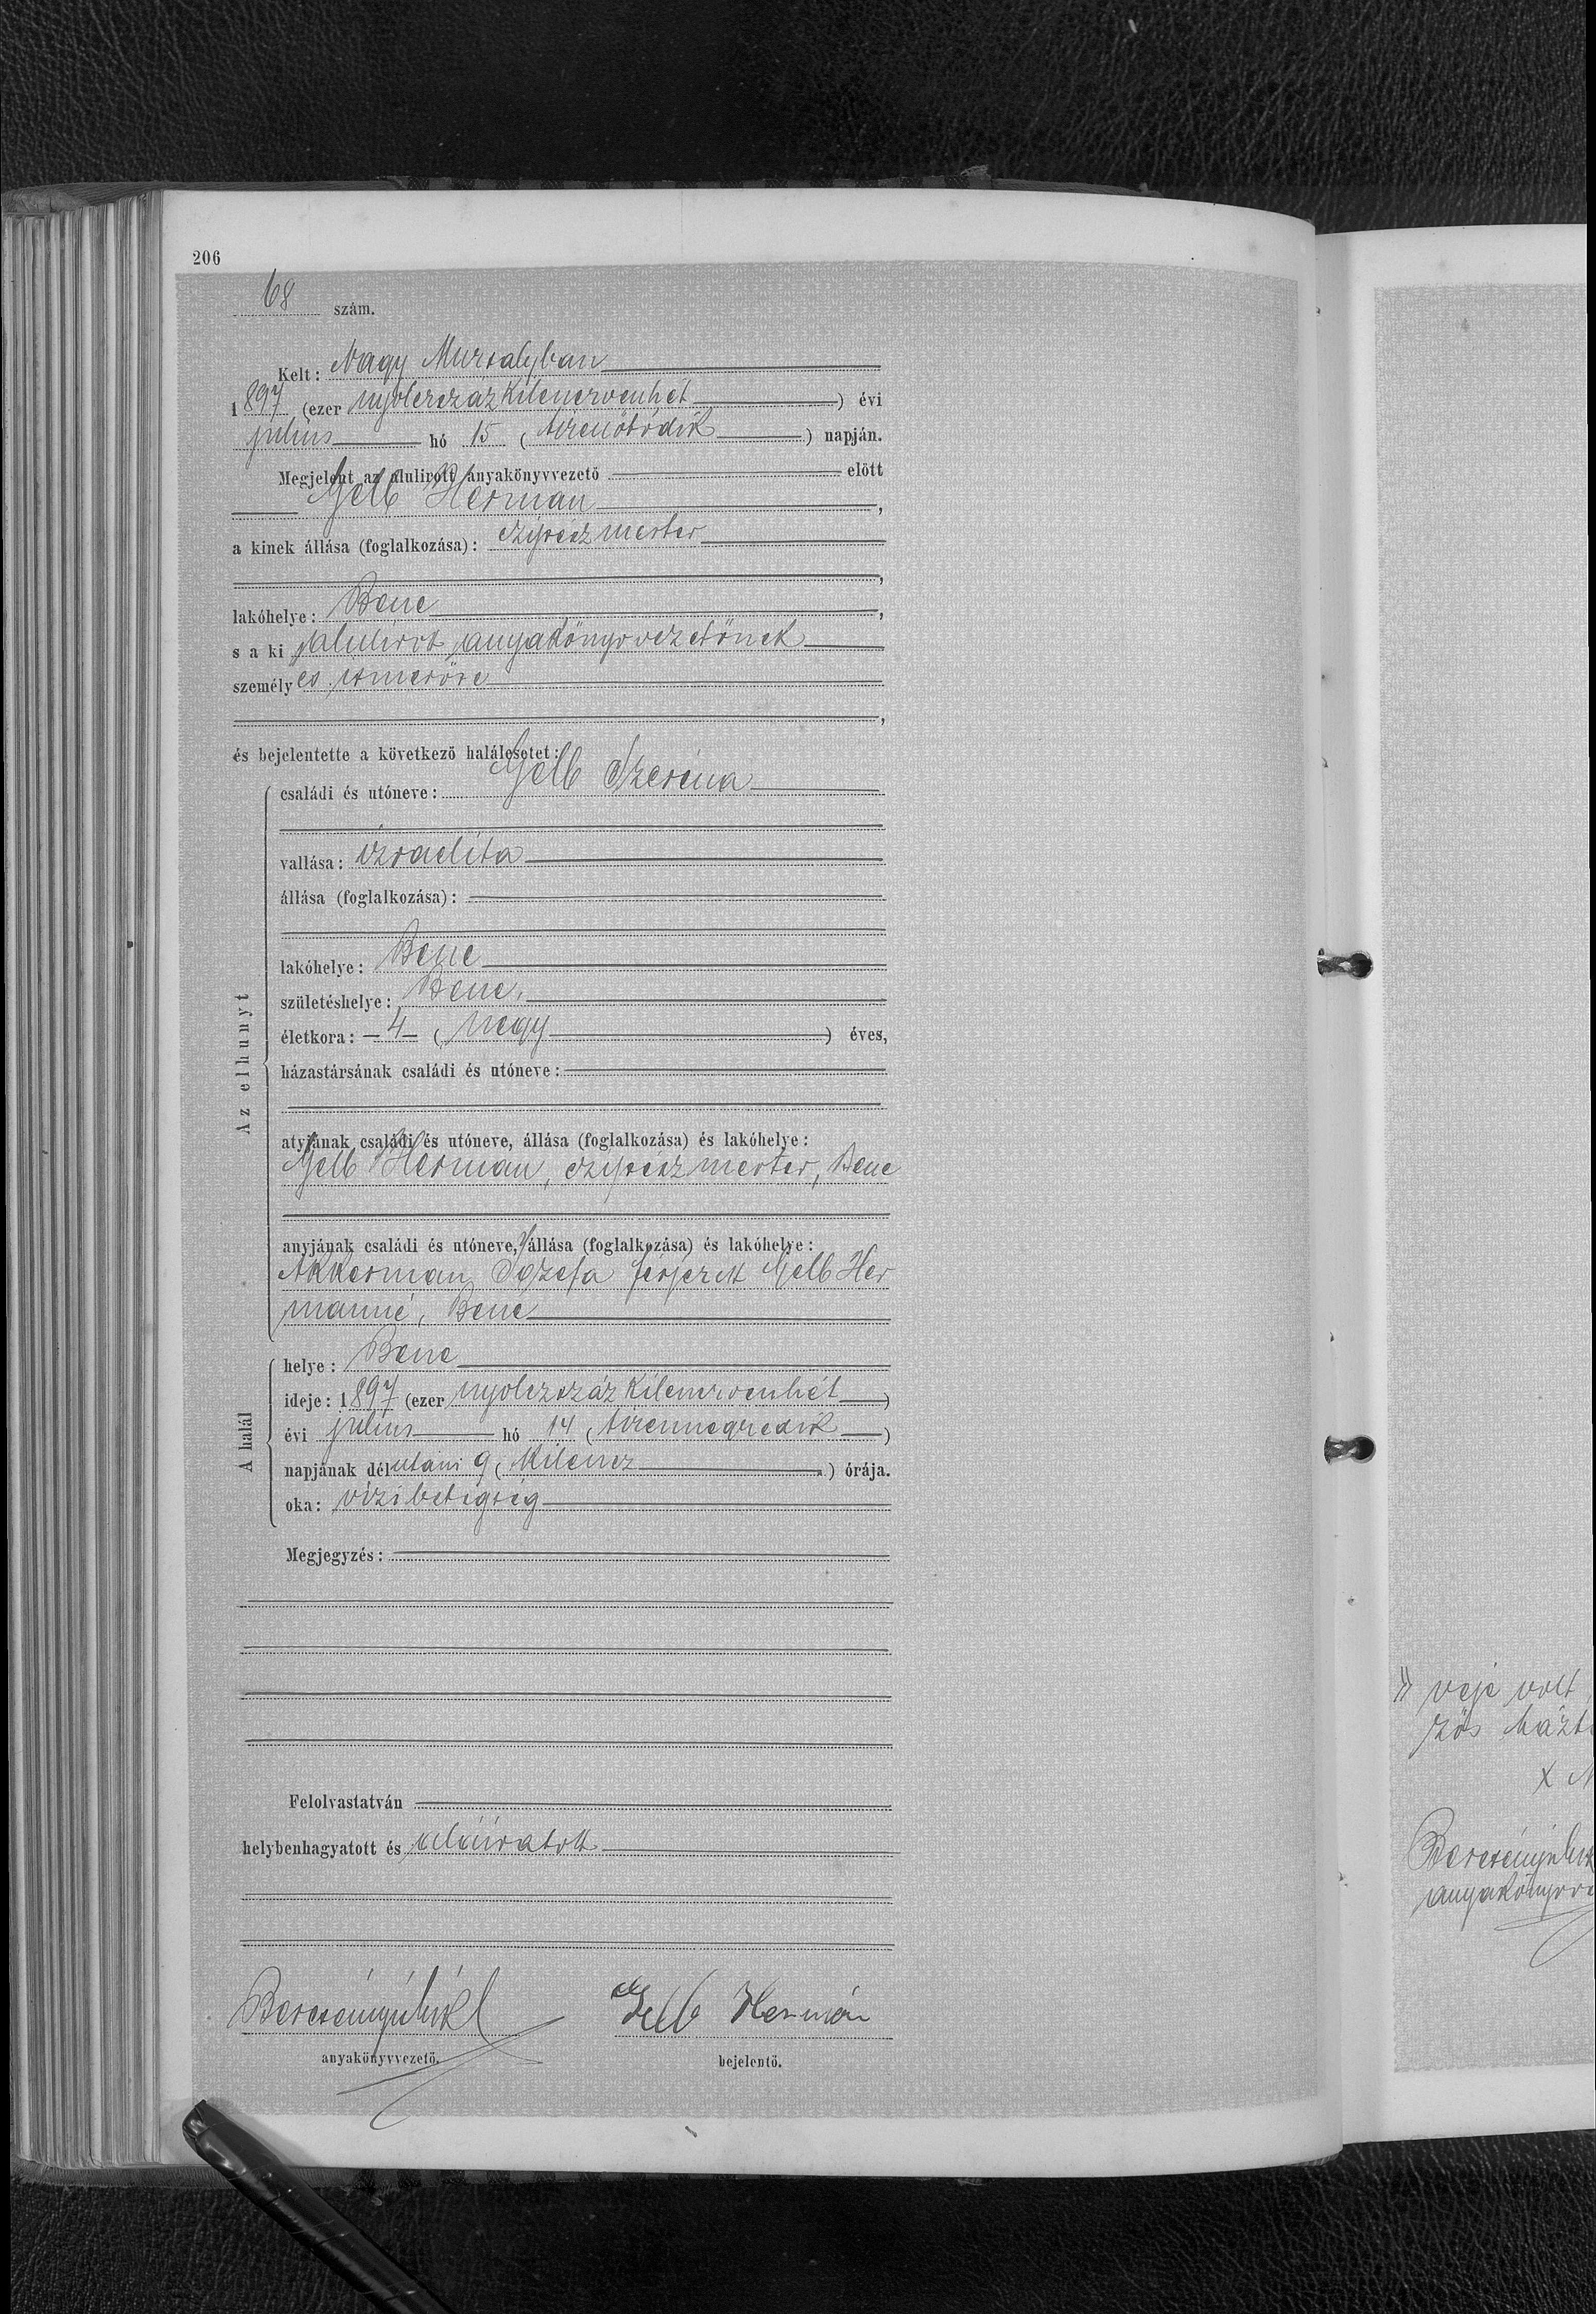 206
68 szám.
Kelt: Nagy Muzsalyban
1897 (ezer nyolczszázkilenczvenhét) évi
július hó 15 (tizenötödik) napján.
Megjelent az alulirott anyakönyvvezető előtt
Gelb Herman,
a kinek állása (foglalkozása): czipészmester
,
lakóhelye: Bene,
s a ki alulírott anyakönyvvezetőnek
személyes ismerőse
,
és bejelentette a következő halálesetet:
Az elhunyt
családi és utóneve: Gelb Szeréna
vallása: izraelita
állása (foglalkozása):
lakóhelye: Bene
születéshelye: Bene,
életkora: –4– (négy) éves,
házastársának családi és utóneve:
atyjának családi és utóneve, állása (foglalkozása) és lakóhelye:
Gelb Herman, czipészmester, Bene
anyjának családi és utóneve, állása (foglalkozása) és lakóhelye:
Akkerman Józefa férjezett Gelb Her
manné, Bene
A halál
helye: Bene
ideje: 1897 (ezer nyolczszázkilenczvenhét)
évi július hó 14 (tizennegyedik)
napjának délutáni 9 (kilencz) órája.
oka: vízibetegség
Megjegyzés:
Felolvastatván
helybenhagyatott és aláíratott
Gelb Hermán
anyakönyvvezető. bejelentő.
veje volt
anyakönyvv